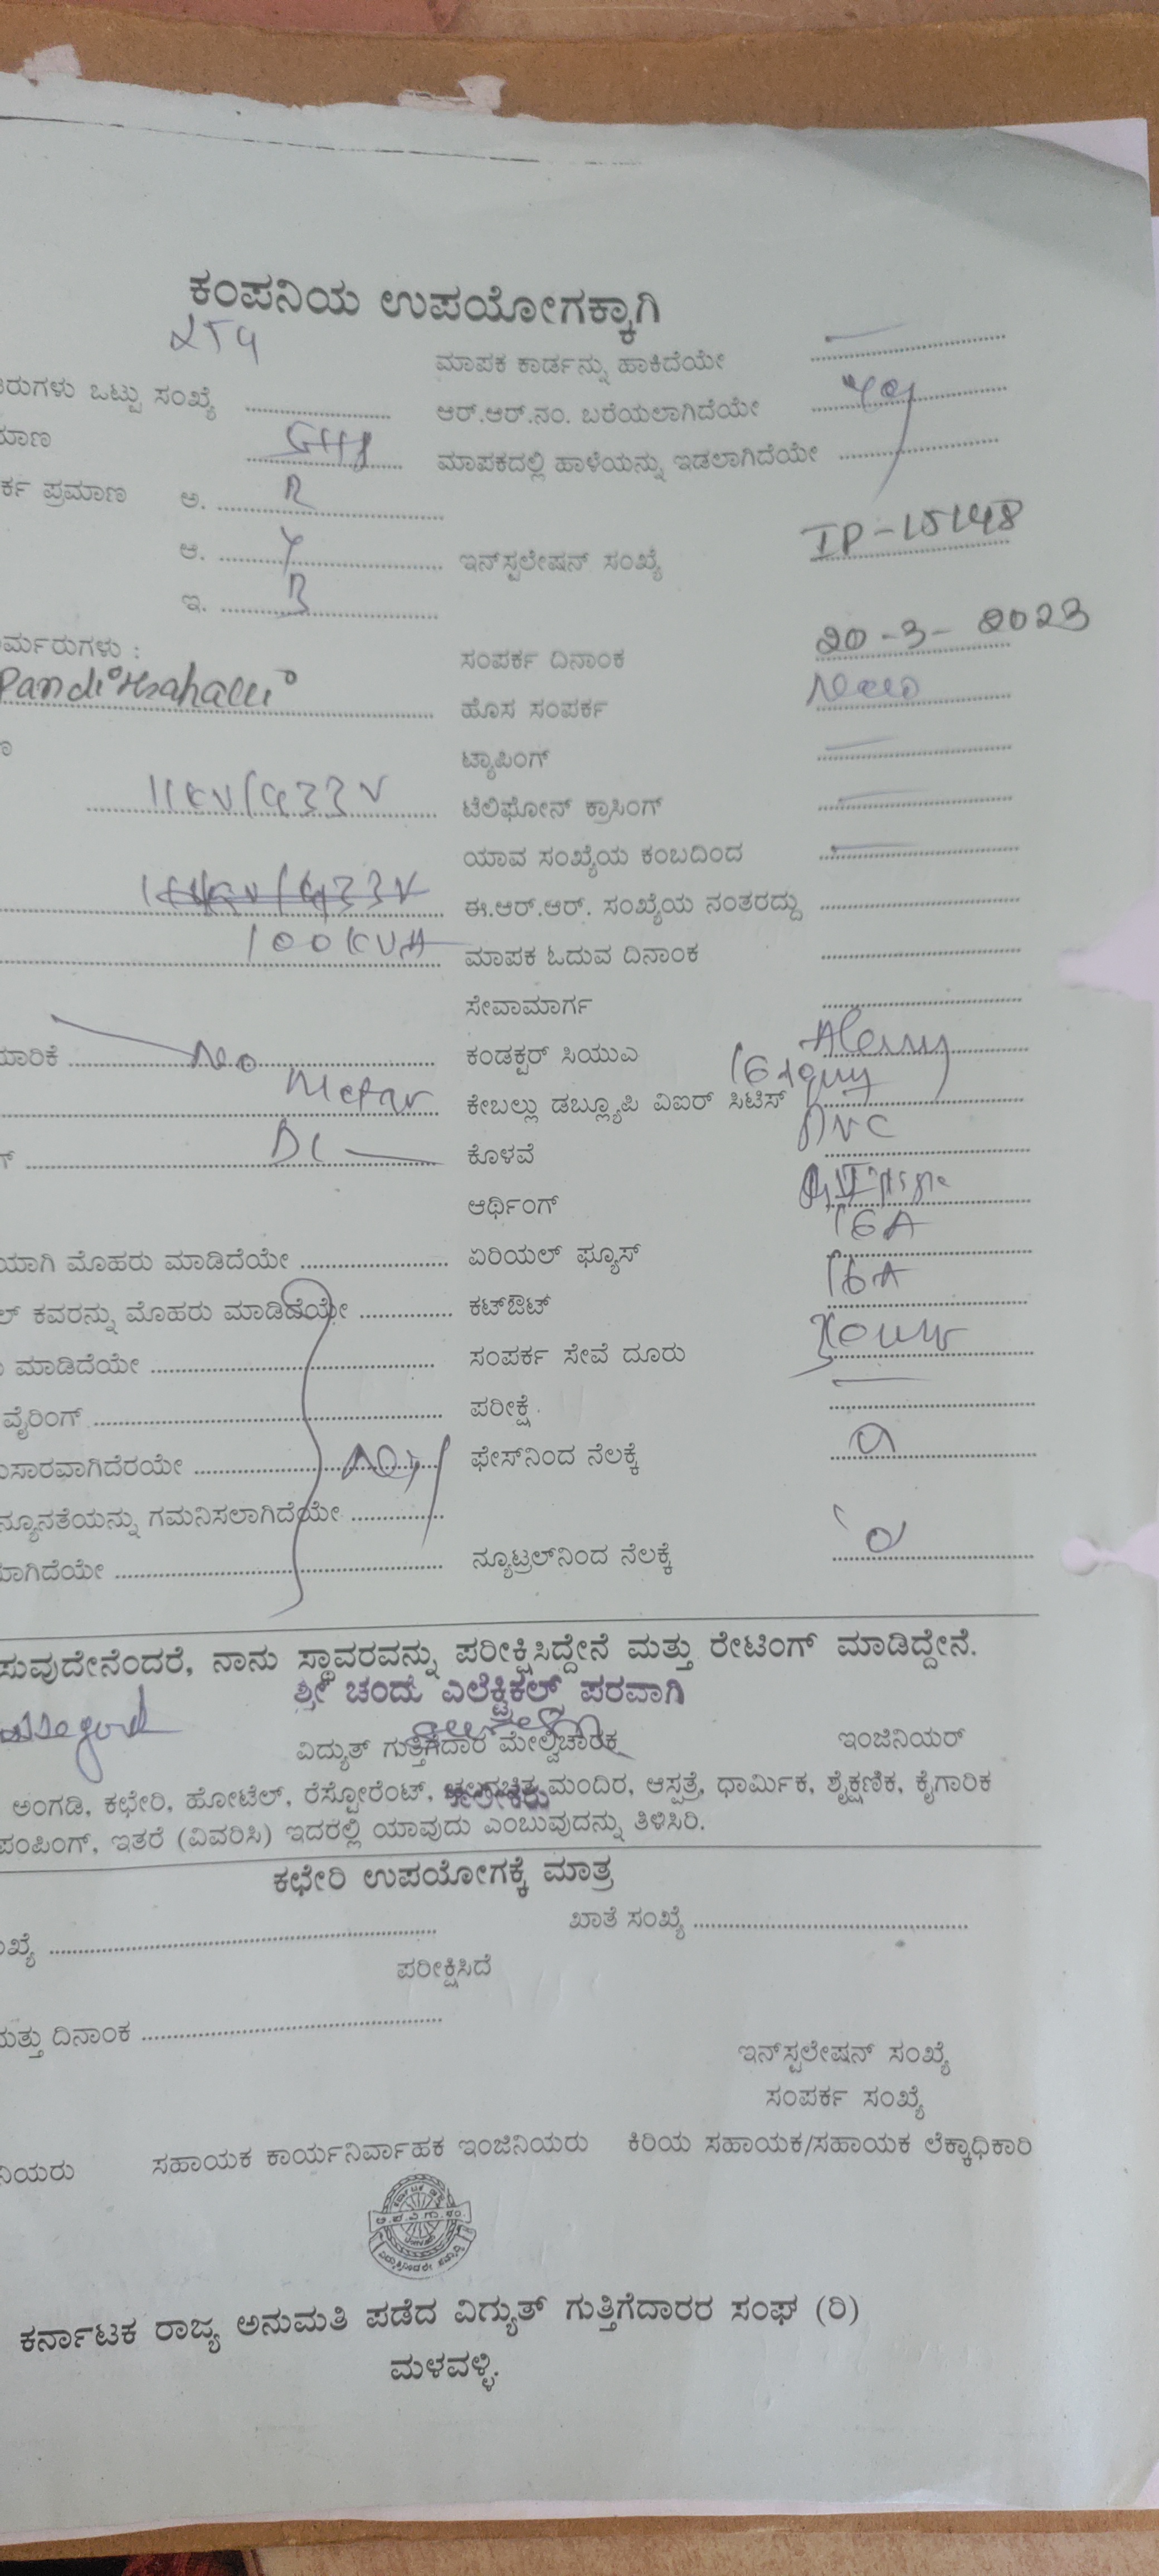 ಕಂಪನಿಯ ಉಪಯೋಗಕ್ಕಾಗಿ
ಮಾಪಕ ಕಾರ್ಡನ್ನು ಹಾಕಿದೆಯೇ
ರುಗಳು ಒಟ್ಟು ಸಂಖ್ಯೆ
ಆರ್.ಆರ್.ನಂ. ಬರೆಯಲಾಗಿದೆಯೇ
ಮಾಣ
ಮಾಪಕದಲ್ಲಿ ಹಾಳೆಯನ್ನು ಇಡಲಾಗಿದೆಯೇ
ರ್ಕ ಪ್ರಮಾಣ ಅ. R
ಆ. Y ಇನ್‌ಸ್ಟಲೇಷನ್ ಸಂಖ್ಯೆ IP-15148
ಇ. B
ರ್ಮರುಗಳು : ಸಂಪರ್ಕ ದಿನಾಂಕ 20-3-2023
ಹೊಸ ಸಂಪರ್ಕ New
ಟ್ಯಾಪಿಂಗ್
11KV/433V ಟೆಲಿಫೋನ್ ಕ್ರಾಸಿಂಗ್
ಯಾವ ಸಂಖ್ಯೆಯ ಕಂಬದಿಂದ
ಈ.ಆರ್.ಆರ್. ಸಂಖ್ಯೆಯ ನಂತರದ್ದು
100KVA ಮಾಪಕ ಓದುವ ದಿನಾಂಕ
ಸೇವಾಮಾರ್ಗ
ಮಾರಿಕೆ No ಕಂಡಕ್ಟರ್ ಸಿಯುಎ
Metar ಕೇಬಲ್ಲು ಡಬ್ಲ್ಯೂಪಿ ವಿಐರ್ ಸಿಟಿಸ್
ಗ್ DC ಕೊಳವೆ PVC
ಆರ್ಥಿಂಗ್
ಯಾಗಿ ಮೊಹರು ಮಾಡಿದೆಯೇ ಏರಿಯಲ್ ಫ್ಯೂಸ್ 16A
ಲ್ ಕವರನ್ನು ಮೊಹರು ಮಾಡಿದೆಯೇ ಕಟ್‌ಔಟ್ 16A
ಮಾಡಿದೆಯೇ ಸಂಪರ್ಕ ಸೇವೆ ದೂರು
ವೈರಿಂಗ್ ಪರೀಕ್ಷೆ
ುಸಾರವಾಗಿದೆರಯೇ ಫೇಸ್‌ನಿಂದ ನೆಲಕ್ಕೆ
ನ್ಯೂನತೆಯನ್ನು ಗಮನಿಸಲಾಗಿದೆಯೇ
ಮಾಗಿದೆಯೇ ನ್ಯೂಟ್ರಲ್‌ನಿಂದ ನೆಲಕ್ಕೆ
ಸುವುದೇನೆಂದರೆ, ನಾನು ಸ್ಥಾವರವನ್ನು ಪರೀಕ್ಷಿಸಿದ್ದೇನೆ ಮತ್ತು ರೇಟಿಂಗ್ ಮಾಡಿದ್ದೇನೆ.
ಶ್ರೀ ಚಂದು ಎಲೆಕ್ಟ್ರಿಕಲ್ಸ್ ಪರವಾಗಿ
ವಿದ್ಯುತ್ ಗುತ್ತಿಗೆದಾರ ಮೇಲ್ವಿಚಾರಕ ಇಂಜಿನಿಯರ್
ಅಂಗಡಿ, ಕಛೇರಿ, ಹೋಟೆಲ್, ರೆಸ್ಟೋರೆಂಟ್, ಚಲನಚಿತ್ರ ಮಂದಿರ, ಆಸ್ಪತ್ರೆ, ಧಾರ್ಮಿಕ, ಶೈಕ್ಷಣಿಕ, ಕೈಗಾರಿಕ
ಪಂಪಿಂಗ್, ಇತರೆ (ವಿವರಿಸಿ) ಇದರಲ್ಲಿ ಯಾವುದು ಎಂಬುವುದನ್ನು ತಿಳಿಸಿರಿ.
ಕಛೇರಿ ಉಪಯೋಗಕ್ಕೆ ಮಾತ್ರ
ಖ್ಯೆ ಖಾತೆ ಸಂಖ್ಯೆ
ಪರೀಕ್ಷಿಸಿದೆ
ಮತ್ತು ದಿನಾಂಕ
ಇನ್‌ಸ್ಟಲೇಷನ್ ಸಂಖ್ಯೆ
ಸಂಪರ್ಕ ಸಂಖ್ಯೆ
ನಿಯರು ಸಹಾಯಕ ಕಾರ್ಯನಿರ್ವಾಹಕ ಇಂಜಿನಿಯರು ಕಿರಿಯ ಸಹಾಯಕ/ಸಹಾಯಕ ಲೆಕ್ಕಾಧಿಕಾರಿ
ಕರ್ನಾಟಕ ರಾಜ್ಯ ಅನುಮತಿ ಪಡೆದ ವಿದ್ಯುತ್ ಗುತ್ತಿಗೆದಾರರ ಸಂಘ (ರಿ)
ಮಳವಳ್ಳಿ.